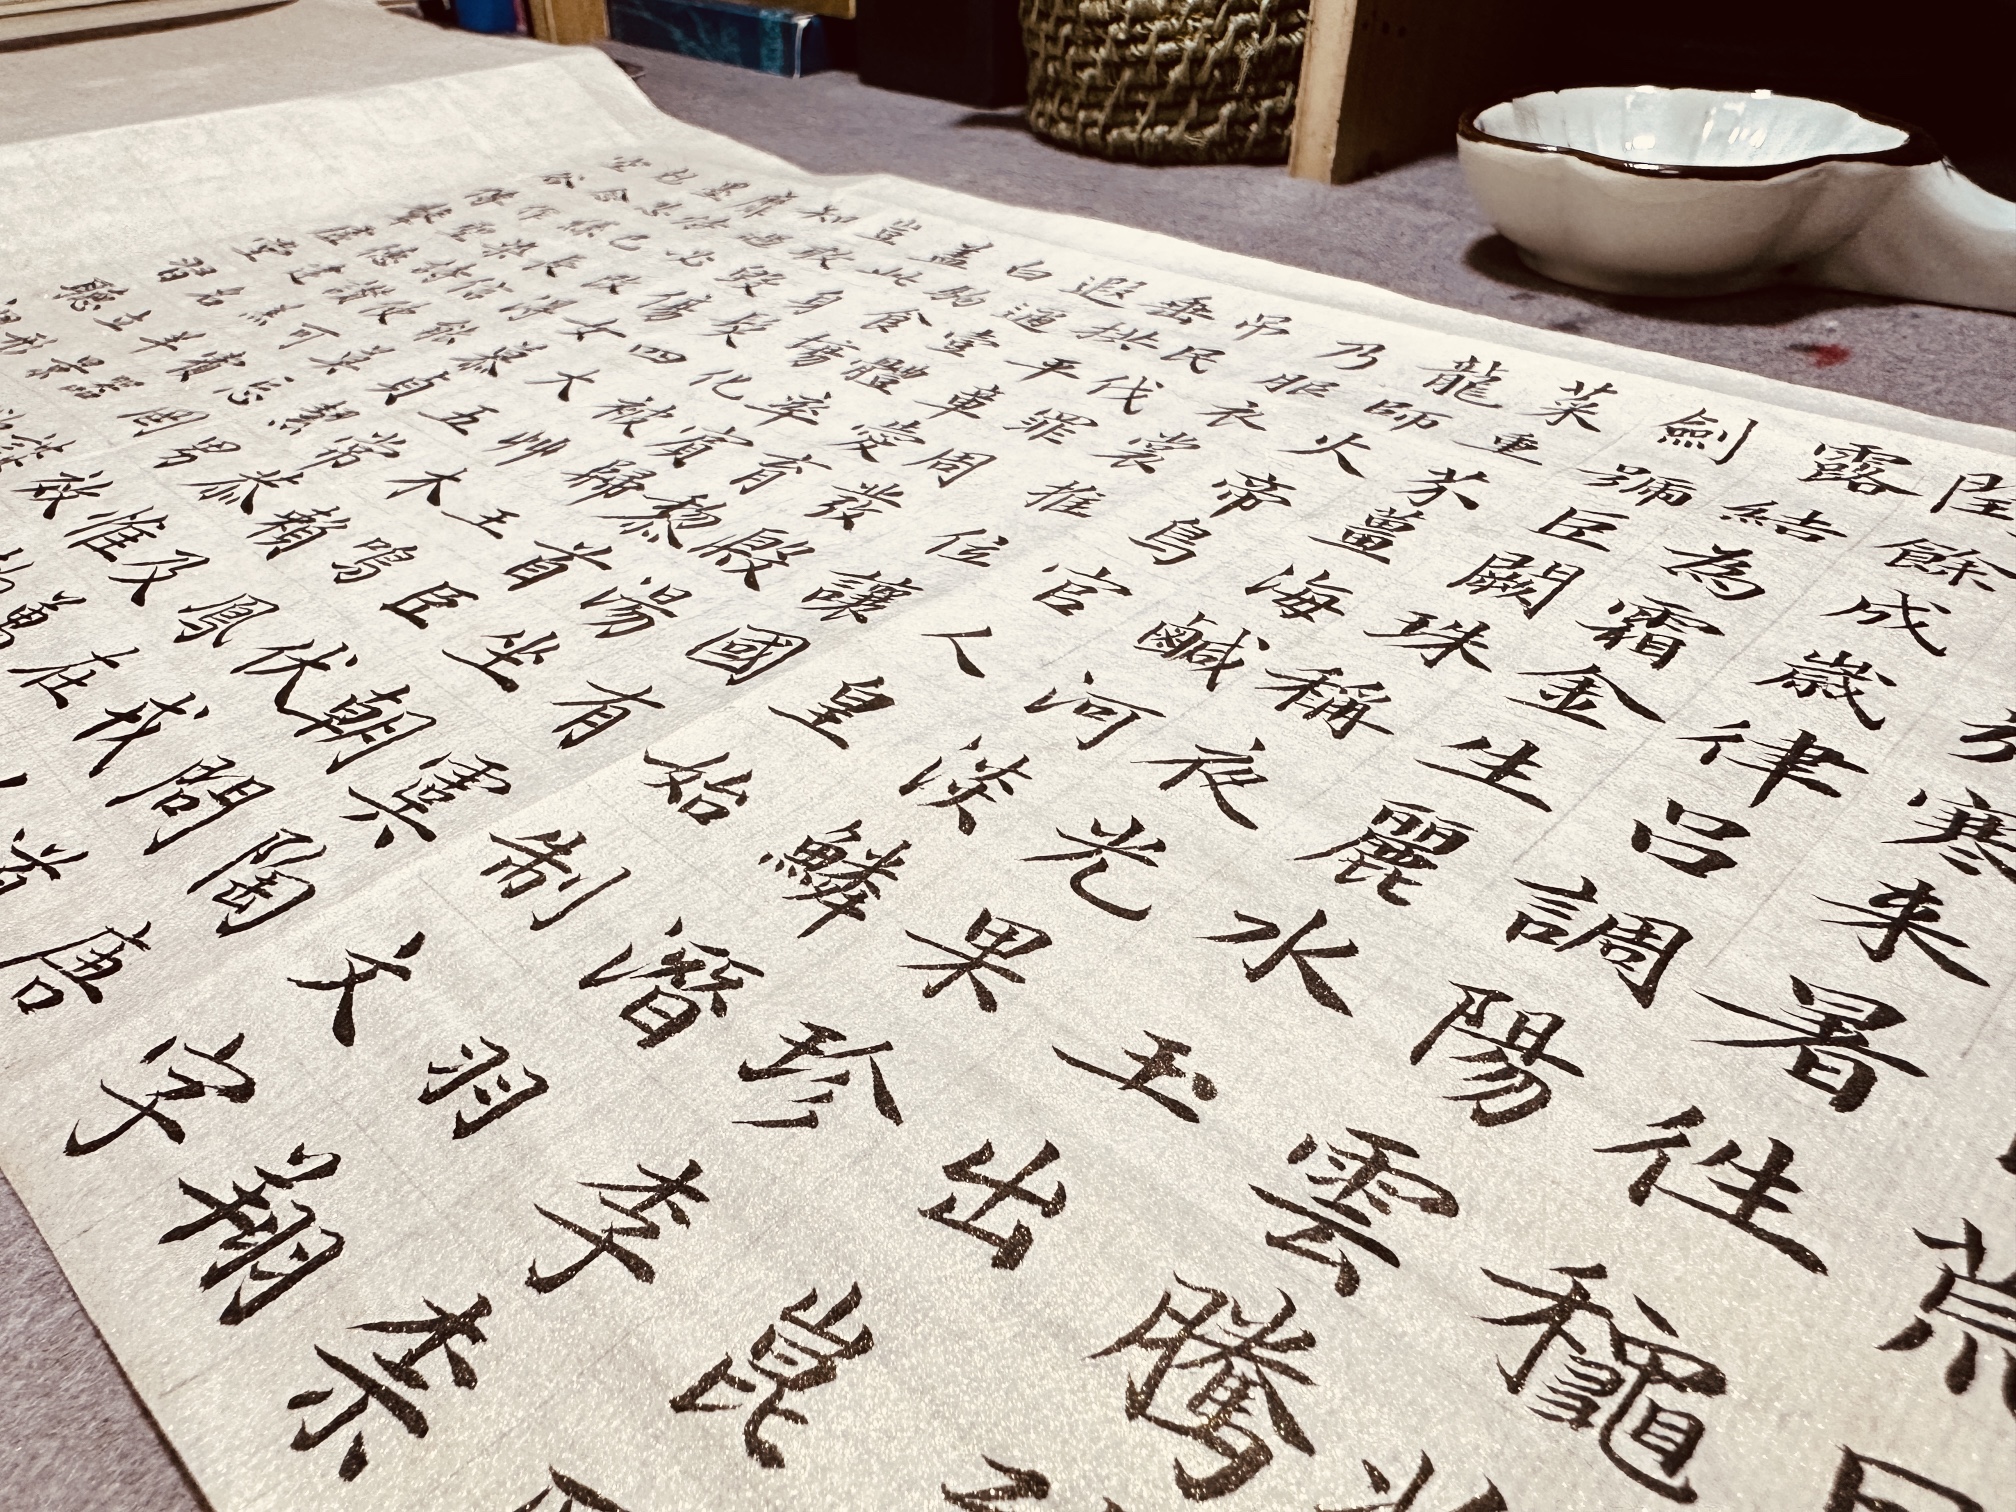 荒日
寒来暑徃龝
餘成歲律呂調陽雲騰
露結為霜金生麗水玉出崑
劍號臣闕珠稱夜光果珍李柰
菜重芥薑海鹹河淡鱗潛羽翔
龍師火帝鳥官人皇始制文字
乃服衣裳推位讓國有虞陶唐
弔民伐罪周發殷湯坐朝問道
垂拱平章愛育黎首臣伏戎
遐通壹體率賓歸王鳴鳳在
白駒食場化被艸木賴及萬
蓋此身髮四大五常恭惟
豈敢毀傷女慕貞潔男效
知過必改得能莫忘罔談
靡恃己長信使可覆器
墨悲絲染詩讚羔羊景
作聖德建名立形
空谷傳聲虛堂習聽